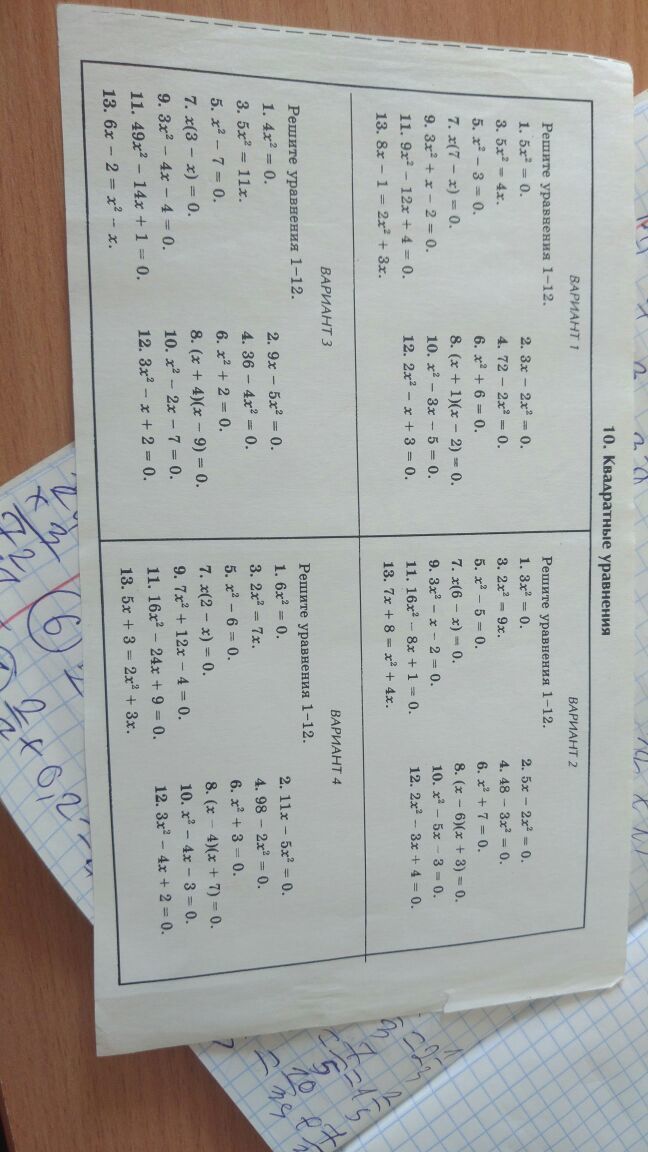 10. Квадратные уравнения
ВАРИАНТ 1
Решите уравнения 1–12.
1. 5x² = 0. 2. 3x − 2x² = 0.
3. 5x² = 4x. 4. 72 − 2x² = 0.
5. x² − 3 = 0. 6. x² + 6 = 0.
7. x(7 − x) = 0. 8. (x + 1)(x − 2) = 0.
9. 3x² + x − 2 = 0. 10. x² − 3x − 5 = 0.
11. 9x² − 12x + 4 = 0. 12. 2x² − x + 3 = 0.
13. 8x − 1 = 2x² + 3x.
ВАРИАНТ 2
Решите уравнения 1–12.
1. 3x² = 0. 2. 5x − 2x² = 0.
3. 2x² = 9x. 4. 48 − 3x² = 0.
5. x² − 5 = 0. 6. x² + 7 = 0.
7. x(6 − x) = 0. 8. (x − 6)(x + 3) = 0.
9. 3x² − x − 2 = 0. 10. x² − 5x − 3 = 0.
11. 16x² − 8x + 1 = 0. 12. 2x² − 3x + 4 = 0.
13. 7x + 8 = x² + 4x.
ВАРИАНТ 3
Решите уравнения 1–12.
1. 4x² = 0. 2. 9x − 5x² = 0.
3. 5x² = 11x. 4. 36 − 4x² = 0.
5. x² − 7 = 0. 6. x² + 2 = 0.
7. x(3 − x) = 0. 8. (x + 4)(x − 9) = 0.
9. 3x² − 4x − 4 = 0. 10. x² − 2x − 7 = 0.
11. 49x² − 14x + 1 = 0. 12. 3x² − x + 2 = 0.
13. 6x − 2 = x² − x.
ВАРИАНТ 4
Решите уравнения 1–12.
1. 6x² = 0. 2. 11x − 5x² = 0.
3. 2x² = 7x. 4. 98 − 2x² = 0.
5. x² − 6 = 0. 6. x² + 3 = 0.
7. x(2 − x) = 0. 8. (x − 4)(x + 7) = 0.
9. 7x² + 12x − 4 = 0. 10. x² − 4x − 3 = 0.
11. 16x² − 24x + 9 = 0. 12. 3x² − 4x + 2 = 0.
13. 5x + 3 = 2x² + 3x.